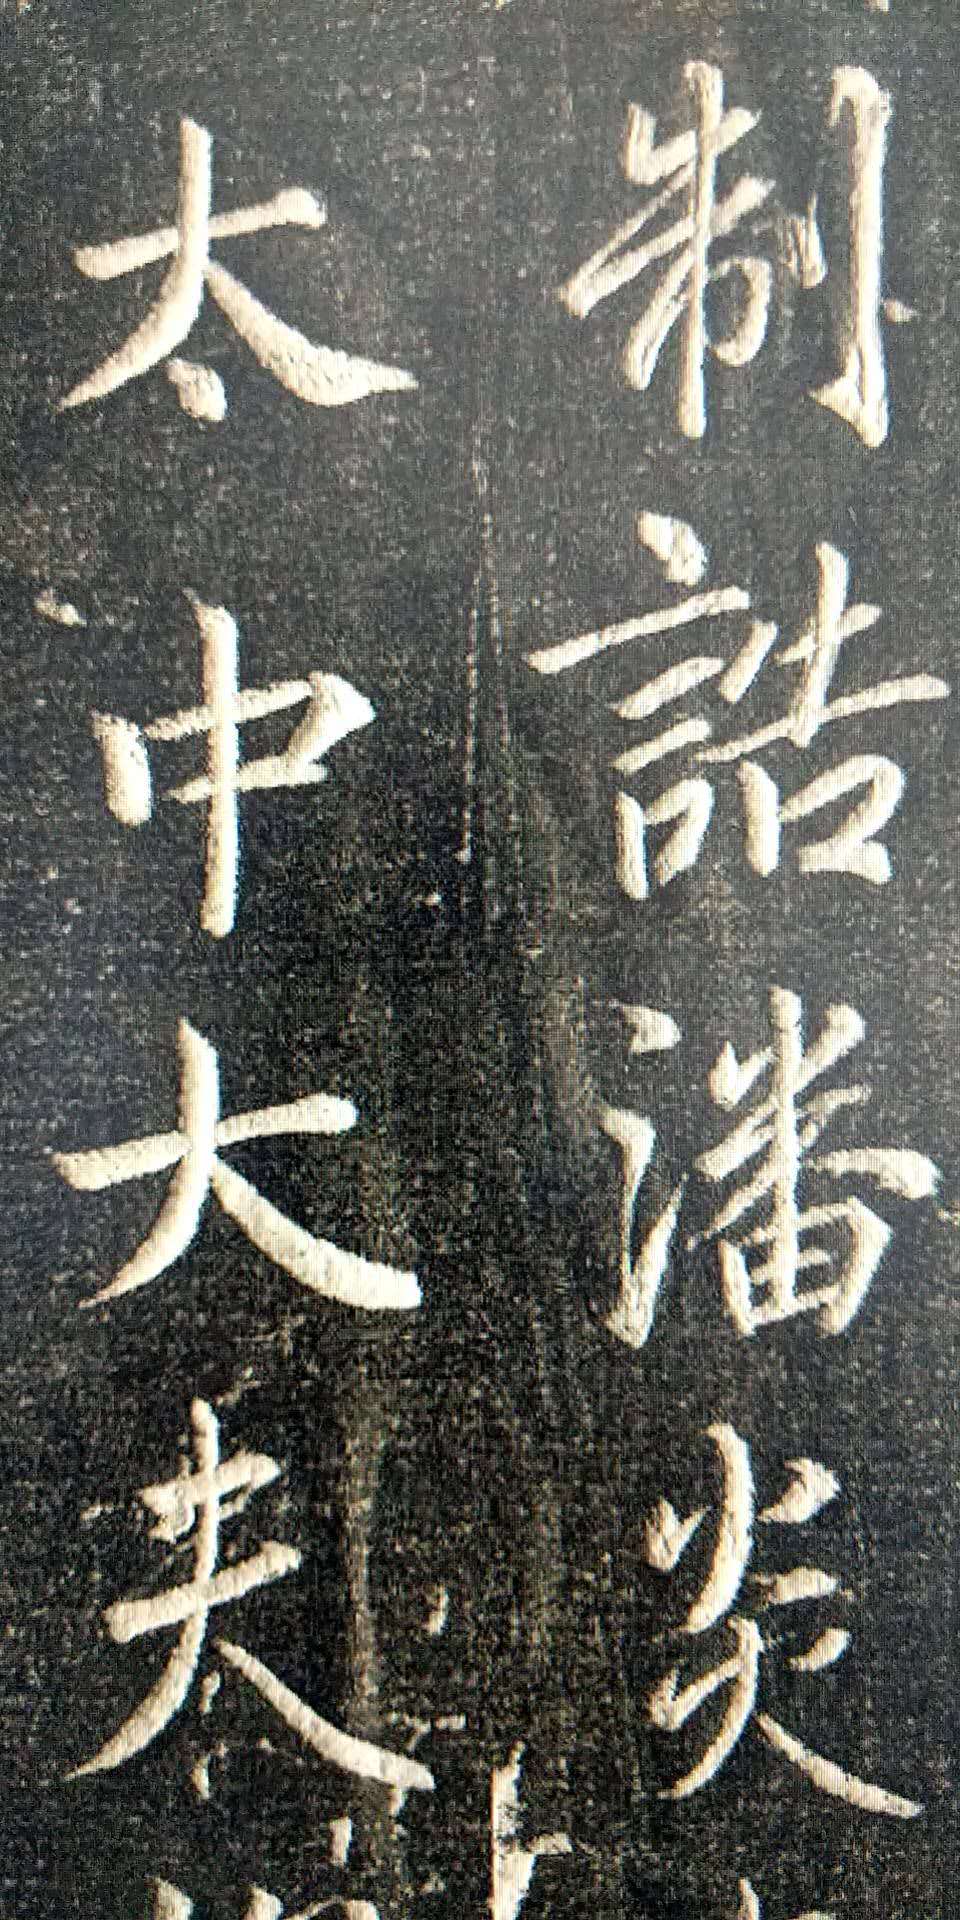 制詰潘炎
太中大夫